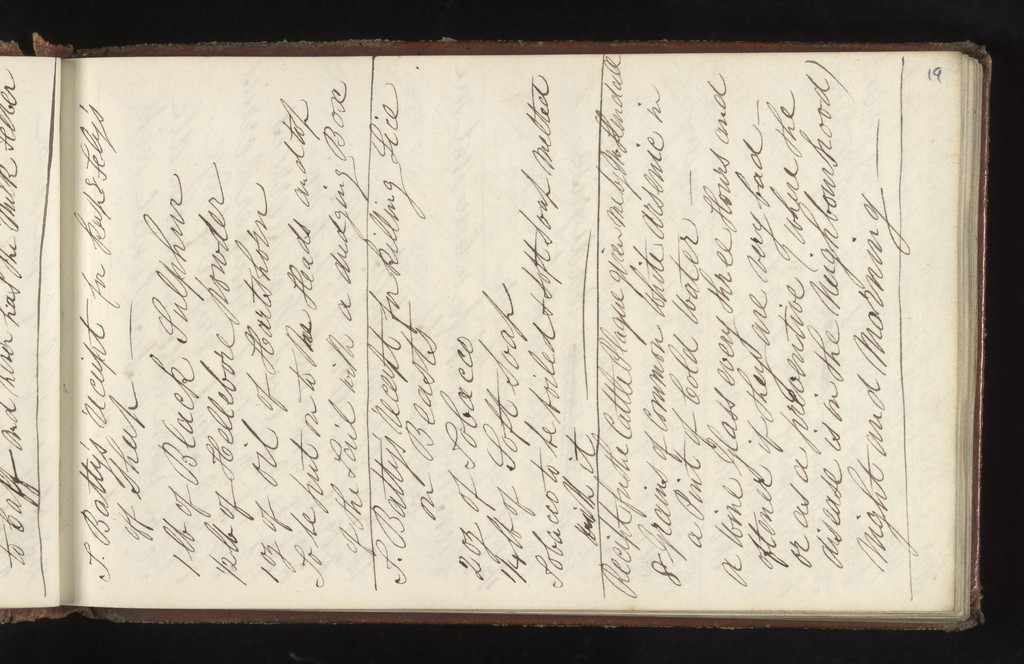 to Calf and
has the Milk Fever
19
T. Batty's receipt for
of Sheep
1 lb of Black Sulphur
1/2 lb of Hellebore Powder
1 oz of Oil of Hartshorn
To be put on to the Heads and top
of the Tail with a drudging Box
T. Batty's receipt for killing Lice
on Beasts
2 oz of Tobacco
1/4 lb of Soft Soap
Tobacco to be boiled & soft soap melted
with it
Recipt for the Cattle Plague given me by Mr
8 grains of Common White Arsenic in
a Pint of Cold Water
a Wine Glass every three Hours and
oftener if they are very bad
or as a preventive (where the
disease is in the Neighbourhood)
Night and Morning